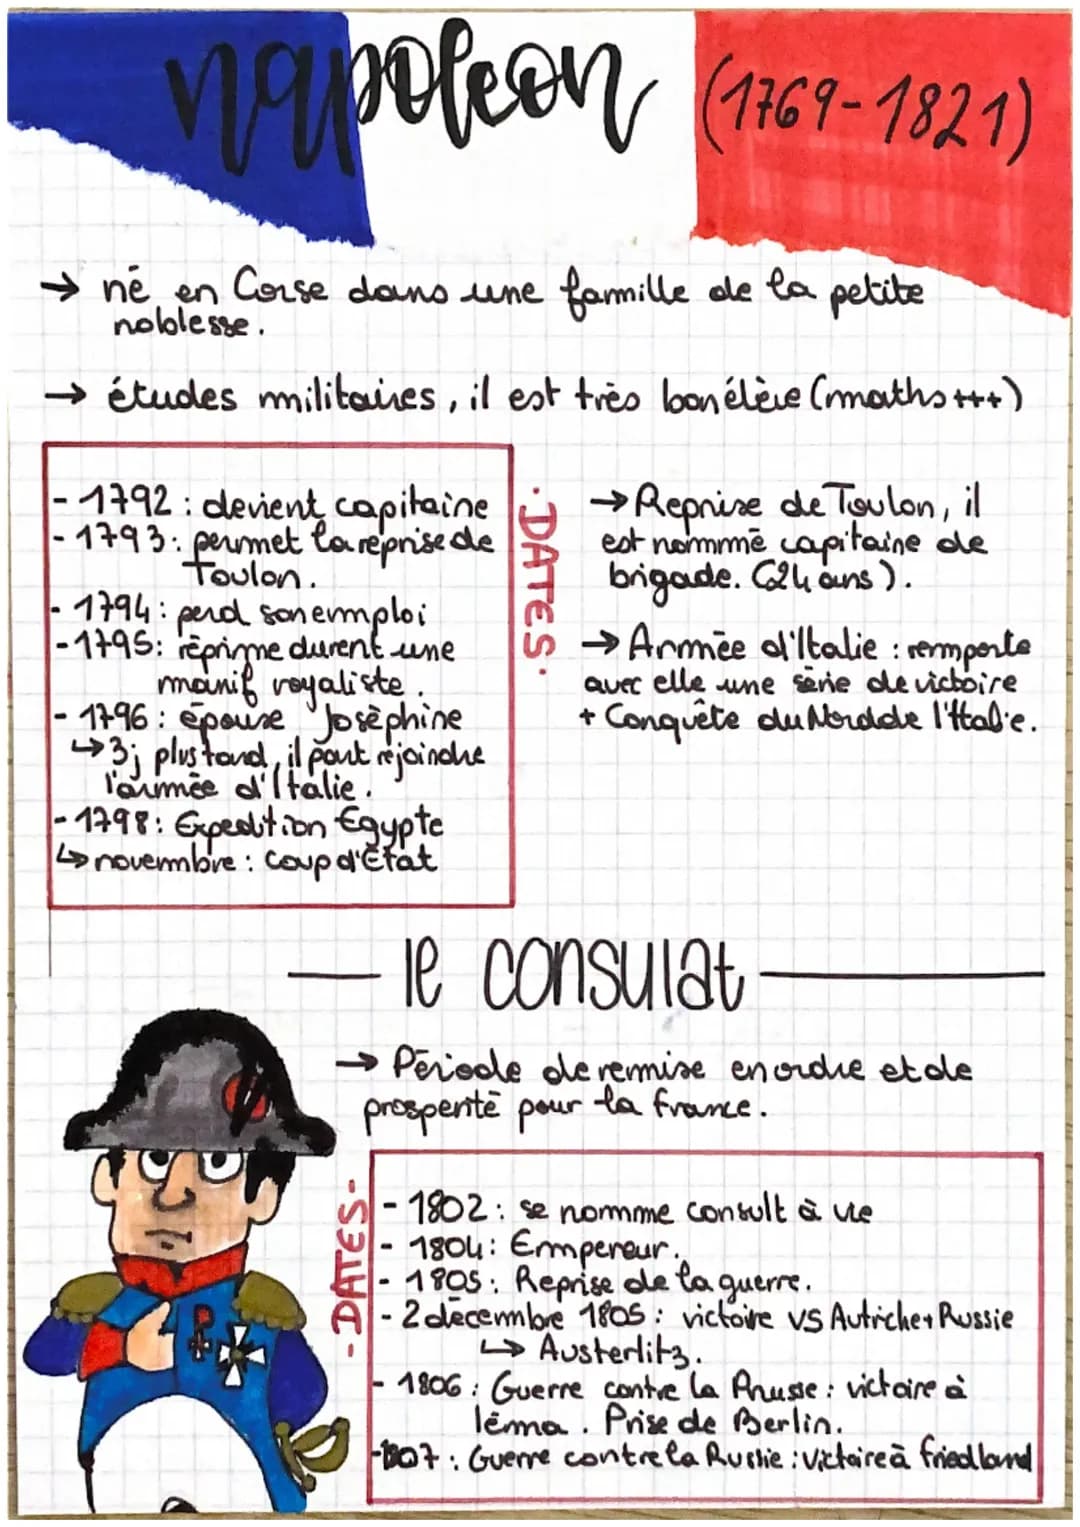 napoleon (1769-1821)
→ né en Corse dans une famille de la petite
noblesse.
→ études militaires, il est très bon élève (maths +++)
- 1792 : devient capitaine
- 1793 : permet la reprise de
Toulon.
- 1794 : perd son emploi
- 1795 : réprime durent une
manif royaliste.
- 1796 : épouse Josèphine
↳ 3j plus tard, il part rejoindre
l'armée d'Italie.
- 1798 : Expedition Egypte
↳ novembre : Coup d'État
• DATES •
→ Reprise de Toulon, il
est nommé capitaine de
brigade. (24 ans).
→ Armée d'Italie : remporte
avec elle une série de victoire
+ Conquête du Nord de l'Italie.
le consulat
→ Période de remise en ordre et de
prosperité pour la france.
- DATES -
- 1802 : se nomme consult à vie
- 1804 : Empereur.
- 1805 : Reprise de la guerre.
- 2 décembre 1805 : victoire VS Autriche + Russie
↳ Austerlitz.
- 1806 : Guerre contre la Prusse : victoire à
Iéma. Prise de Berlin.
- 1807 : Guerre contre la Russie : victoire à friedland